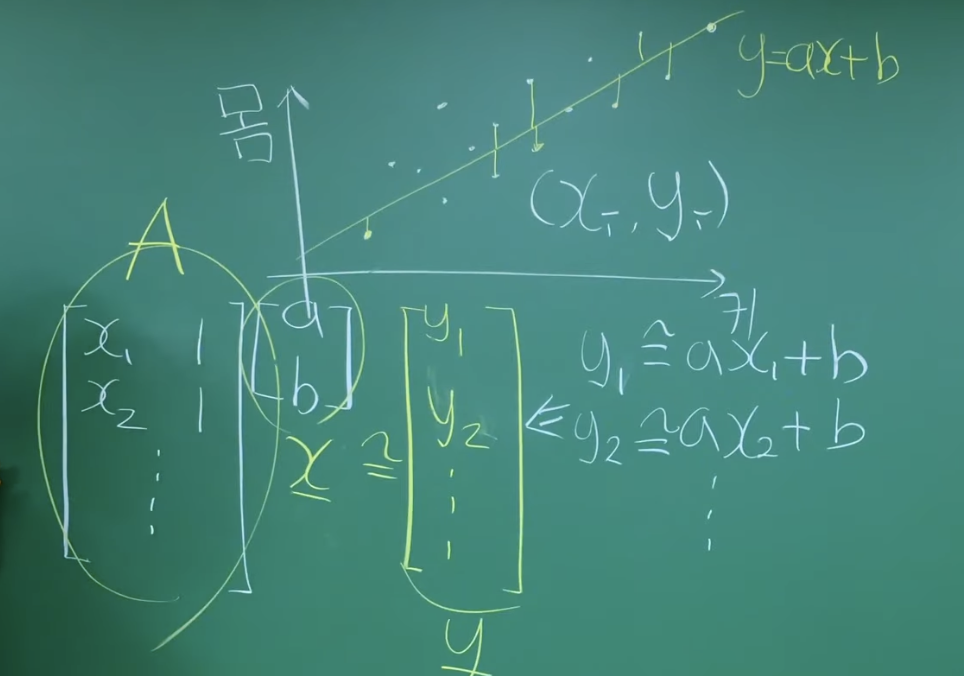 y=ax+b
몸
(xᵢ, yᵢ)
키
A
[x₁ 1
x₂ 1
⋮]
[a
b]
x ≅
[y₁
y₂
⋮]
y
⇐
y₁ ≅ ax₁+b
y₂ ≅ ax₂+b
⋮